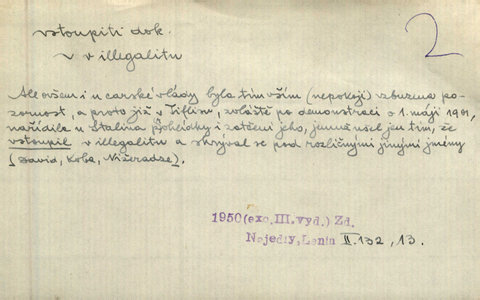 vstoupiti dok.
v v illegalitu
2
Ale ovšem i u carské vlády byla tím vším (nepokoji) vzbuzena po-
zornost, a proto již v Tiflisu, zvláště po demonstraci o 1. máji 1901,
nařídila u Stalina prohlídky i zatčení jeho, jemuž ušel jen tím, že
vstoupil v illegalitu a skrýval se pod rozličnými jinými jmény
(David, Koba, Nižeradze).
1950 (exc. III. vyd.) Zd.
Nejedlý, Lenin II. 132, 13.